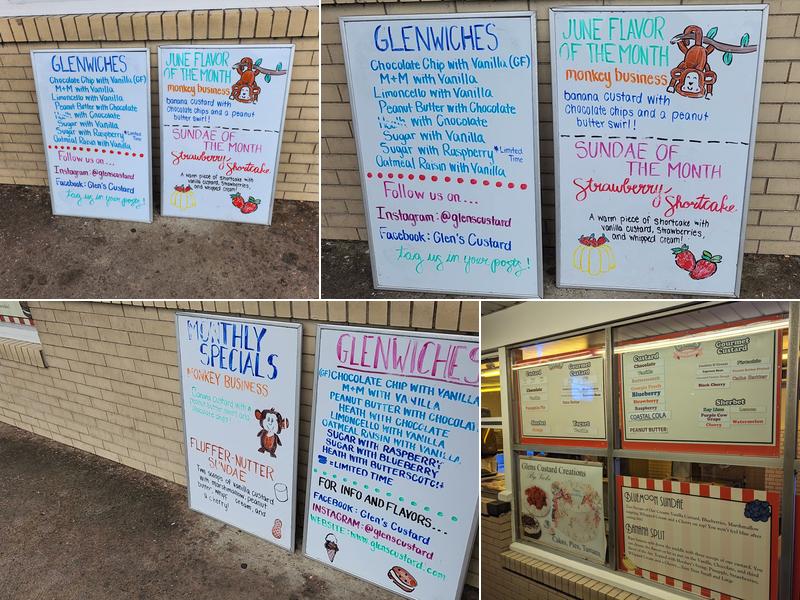 GLENWICHES
Chocolate Chip with Vanilla (GF)
M+M with Vanilla
Limoncello with Vanilla
Peanut Butter with Chocolate
with Chocolate
Sugar with Vanilla
Sugar with Raspberry *Limited Time
Oatmeal Raisin with Vanilla
Follow us on...
Instagram: @glenscustard
Facebook: Glen's Custard
tag us in your posts!
JUNE FLAVOR
OF THE MONTH
monkey business
banana custard with
chocolate chips and a peanut
butter swirl!
SUNDAE OF
THE MONTH
Strawberry
Shortcake
A warm piece of shortcake with
vanilla custard, strawberries,
and whipped cream!
GLENWICHES
Chocolate Chip with Vanilla (GF)
M+M with Vanilla
Limoncello with Vanilla
Peanut Butter with Chocolate
with Chocolate
Sugar with Vanilla
Sugar with Raspberry *Limited Time
Oatmeal Raisin with Vanilla
Follow us on...
Instagram: @glenscustard
Facebook: Glen's Custard
tag us in your posts!
JUNE FLAVOR
OF THE MONTH
monkey business
banana custard with
chocolate chips and a peanut
butter swirl!
SUNDAE OF
THE MONTH
Strawberry
Shortcake
A warm piece of shortcake with
vanilla custard, strawberries,
and whipped cream!
MONTHLY
SPECIALS
MONKEY BUSINESS
Banana Custard with a
peanut butter swirl and
chocolate chips!
FLUFFER-NUTTER
SUNDAE
Two scoops of vanilla custard
with marshmallow, peanut
butter, whip cream, and
a cherry!
GLENWICHES
(GF) CHOCOLATE CHIP WITH VANILLA
M+M WITH VANILLA
PEANUT BUTTER WITH CHOCOLAT
HEATH WITH CHOCOLATE
LIMONCELLO WITH VANILLA
OATMEAL RAISIN WITH VANILLA
SUGAR WITH RASPBERRY
SUGAR WITH BLUEBERRY
HEATH WITH BUTTERSCOTCH
=LIMITED TIME
FOR INFO AND FLAVORS...
FACEBOOK: Glen's Custard
INSTAGRAM: @glenscustard
WEBSITE: www.glenscustard.com
Custard
Chocolate
Vanilla
Gourmet
Custard
Sherbet
Yogurt
Custard
Chocolate
Vanilla
Butterscotch
Georgia Peach
Blueberry
Strawberry
Raspberry
COASTAL COLA
PEANUT BUTTER
Gourmet
Custard
Pistachio
Black Cherry
Sherbet
Key Lime
Purple Cow
Grape
Cherry
Lemon
Watermelon
Glens Custard Creations
By Vicki
Cakes, Pies, Tortes
BLUEMOON SUNDAE
BANANA SPLIT